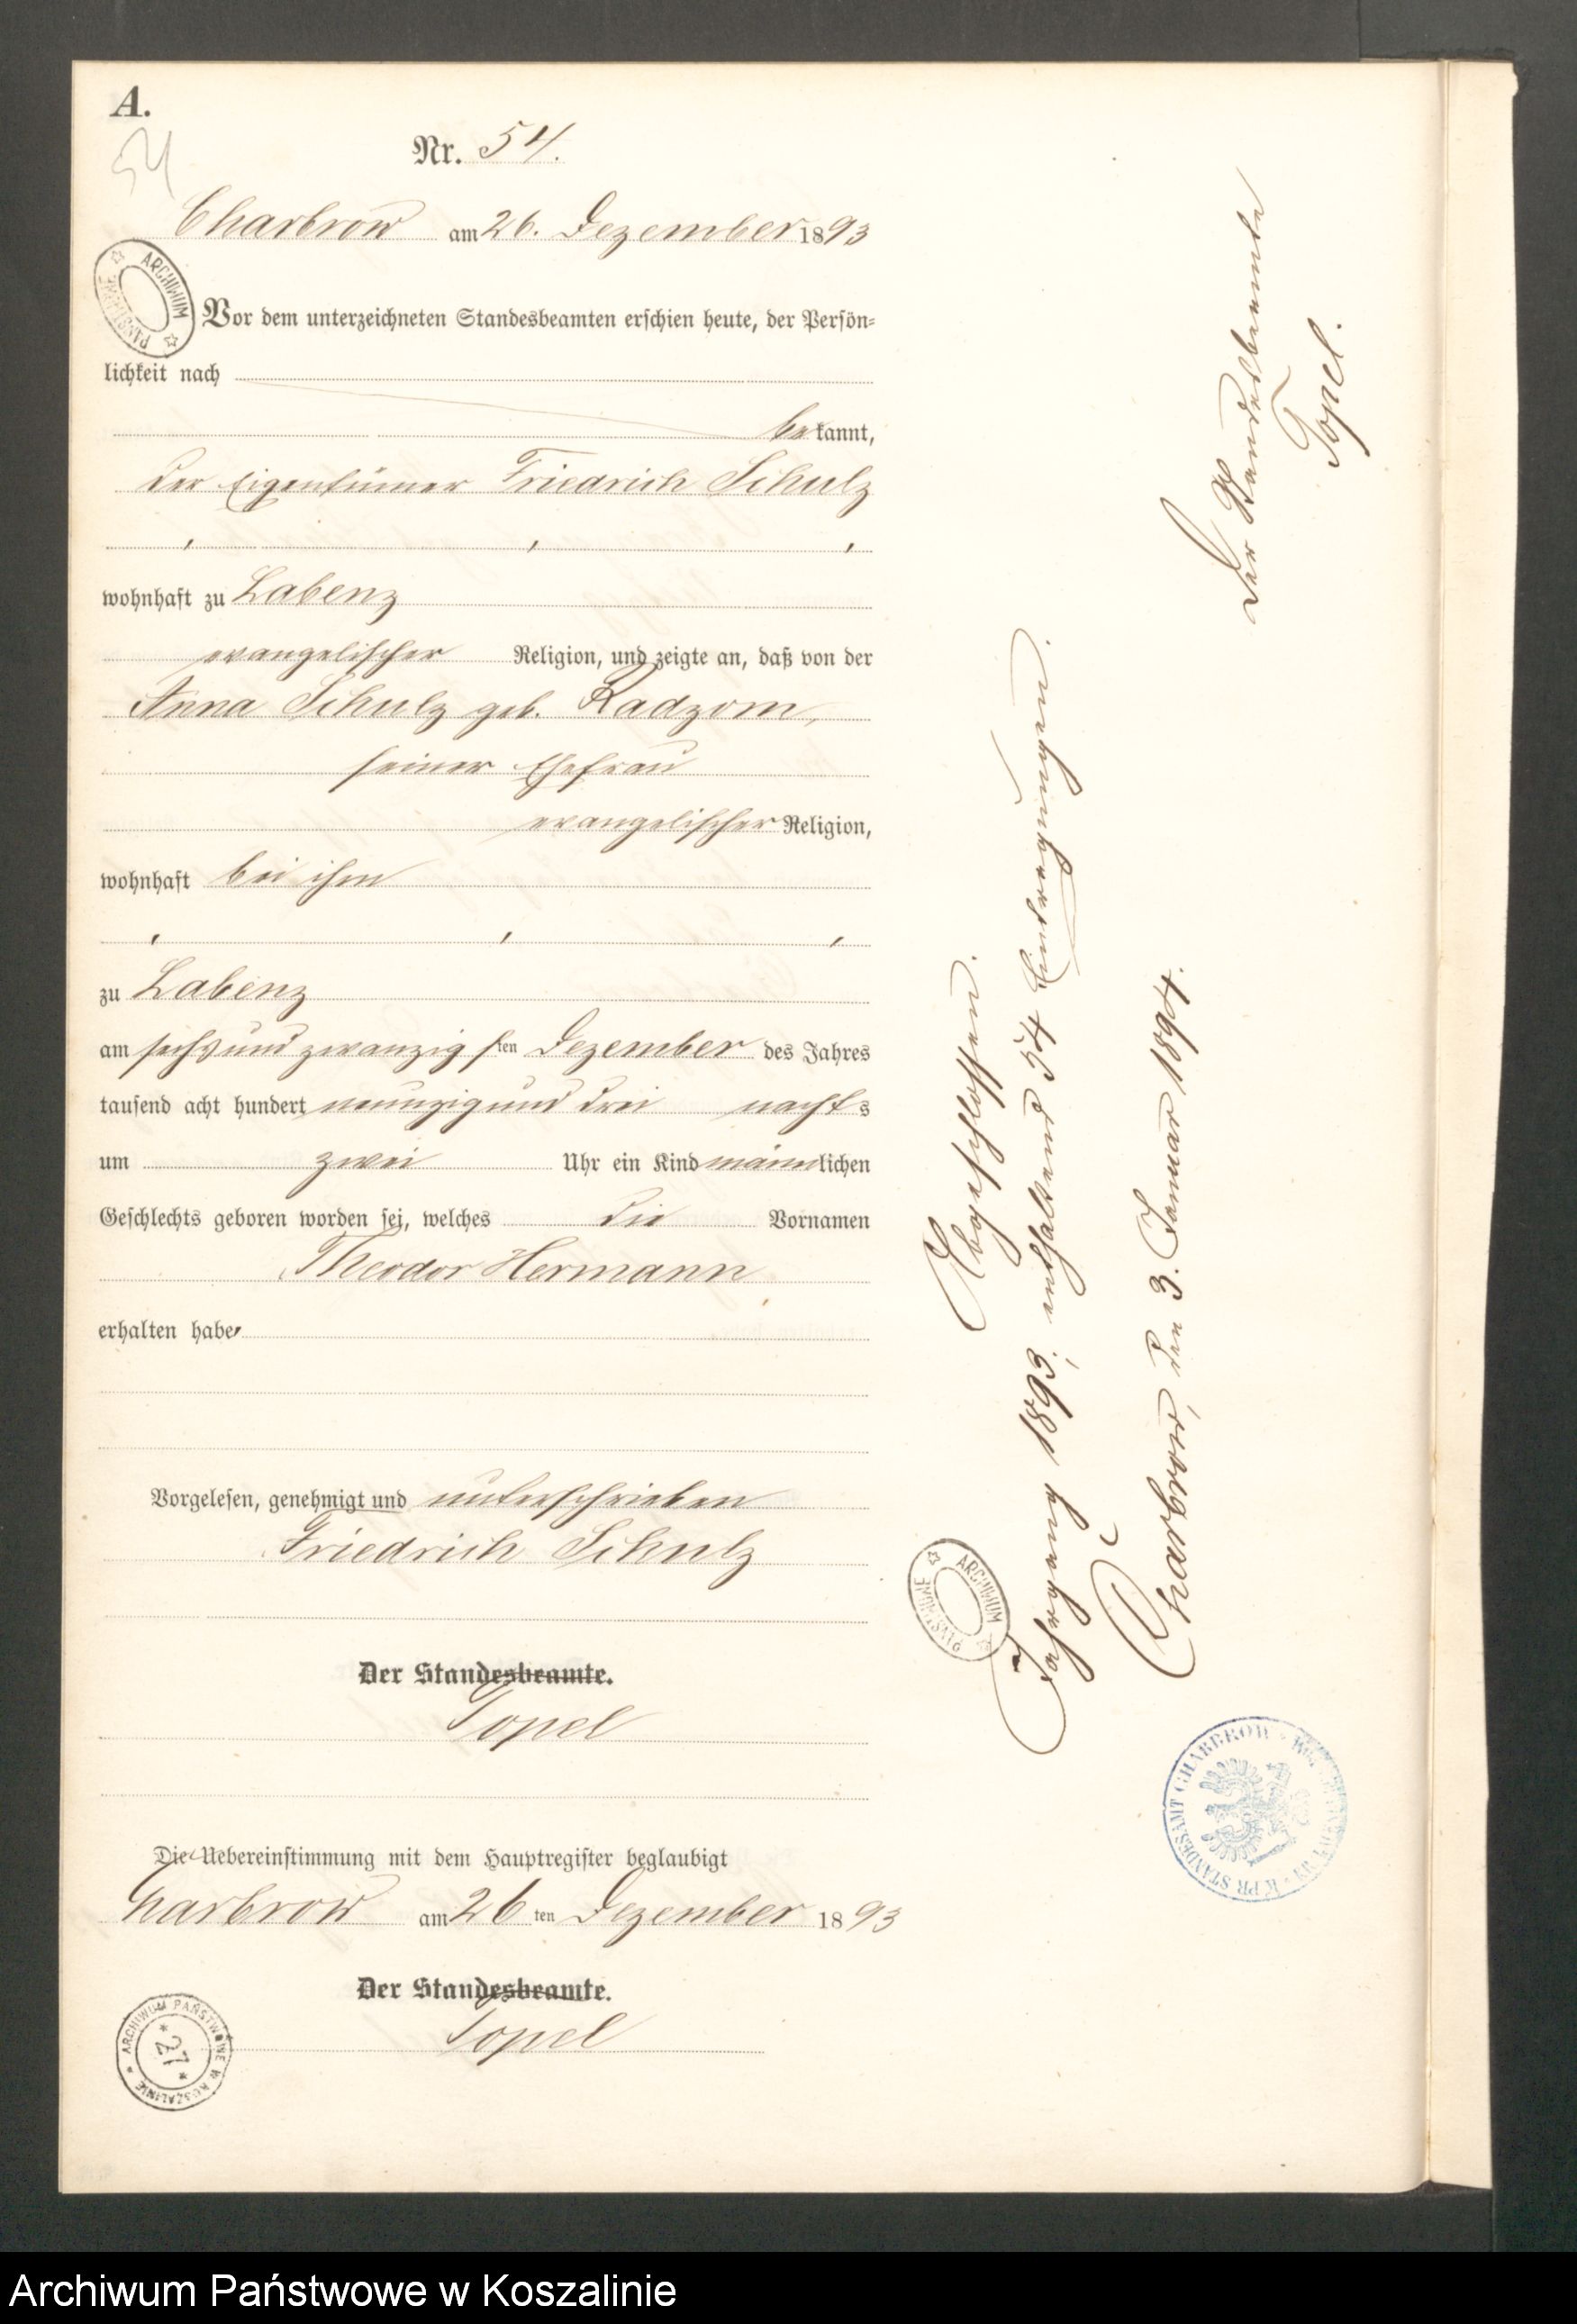 A.
54
Nr. 54.
Charbrow am 26. Dezember 1893
ARCHIWUM PAŃSTWOWE
Vor dem unterzeichneten Standesbeamten erschien heute, der Persön-
lichkeit nach
bekannt,
der Eigentümer Friedrich Schulz
wohnhaft zu Labenz
evangelischer Religion, und zeigte an, daß von der
Anna Schulz geb. Radzom,
seiner Ehefrau
evangelischer Religion,
wohnhaft bei ihm
zu Labenz
am sechsundzwanzigsten Dezember des Jahres
tausend acht hundert neunzig und drei nachts
um zwei Uhr ein Kind männlichen
Geschlechts geboren worden sei, welches die Vornamen
Theodor Hermann
erhalten habe
Vorgelesen, genehmigt und unterschrieben
Friedrich Schulz
Der Standesbeamte.
Topel
Die Uebereinstimmung mit dem Hauptregister beglaubigt
Charbrow am 26ten Dezember 1893
Der Standesbeamte.
Topel
ARCHIWUM PAŃSTWOWE W KOSZALINIE
27
Abgeschlossen.
Jahrgang 1893, enthaltend 54 Eintragungen.
Charbrow, den 3. Januar 1894.
Der Standesbeamte
Topel.
ARCHIWUM PAŃSTWOWE
K. PR. STANDESAMT CHARBROW
Archiwum Państwowe w Koszalinie